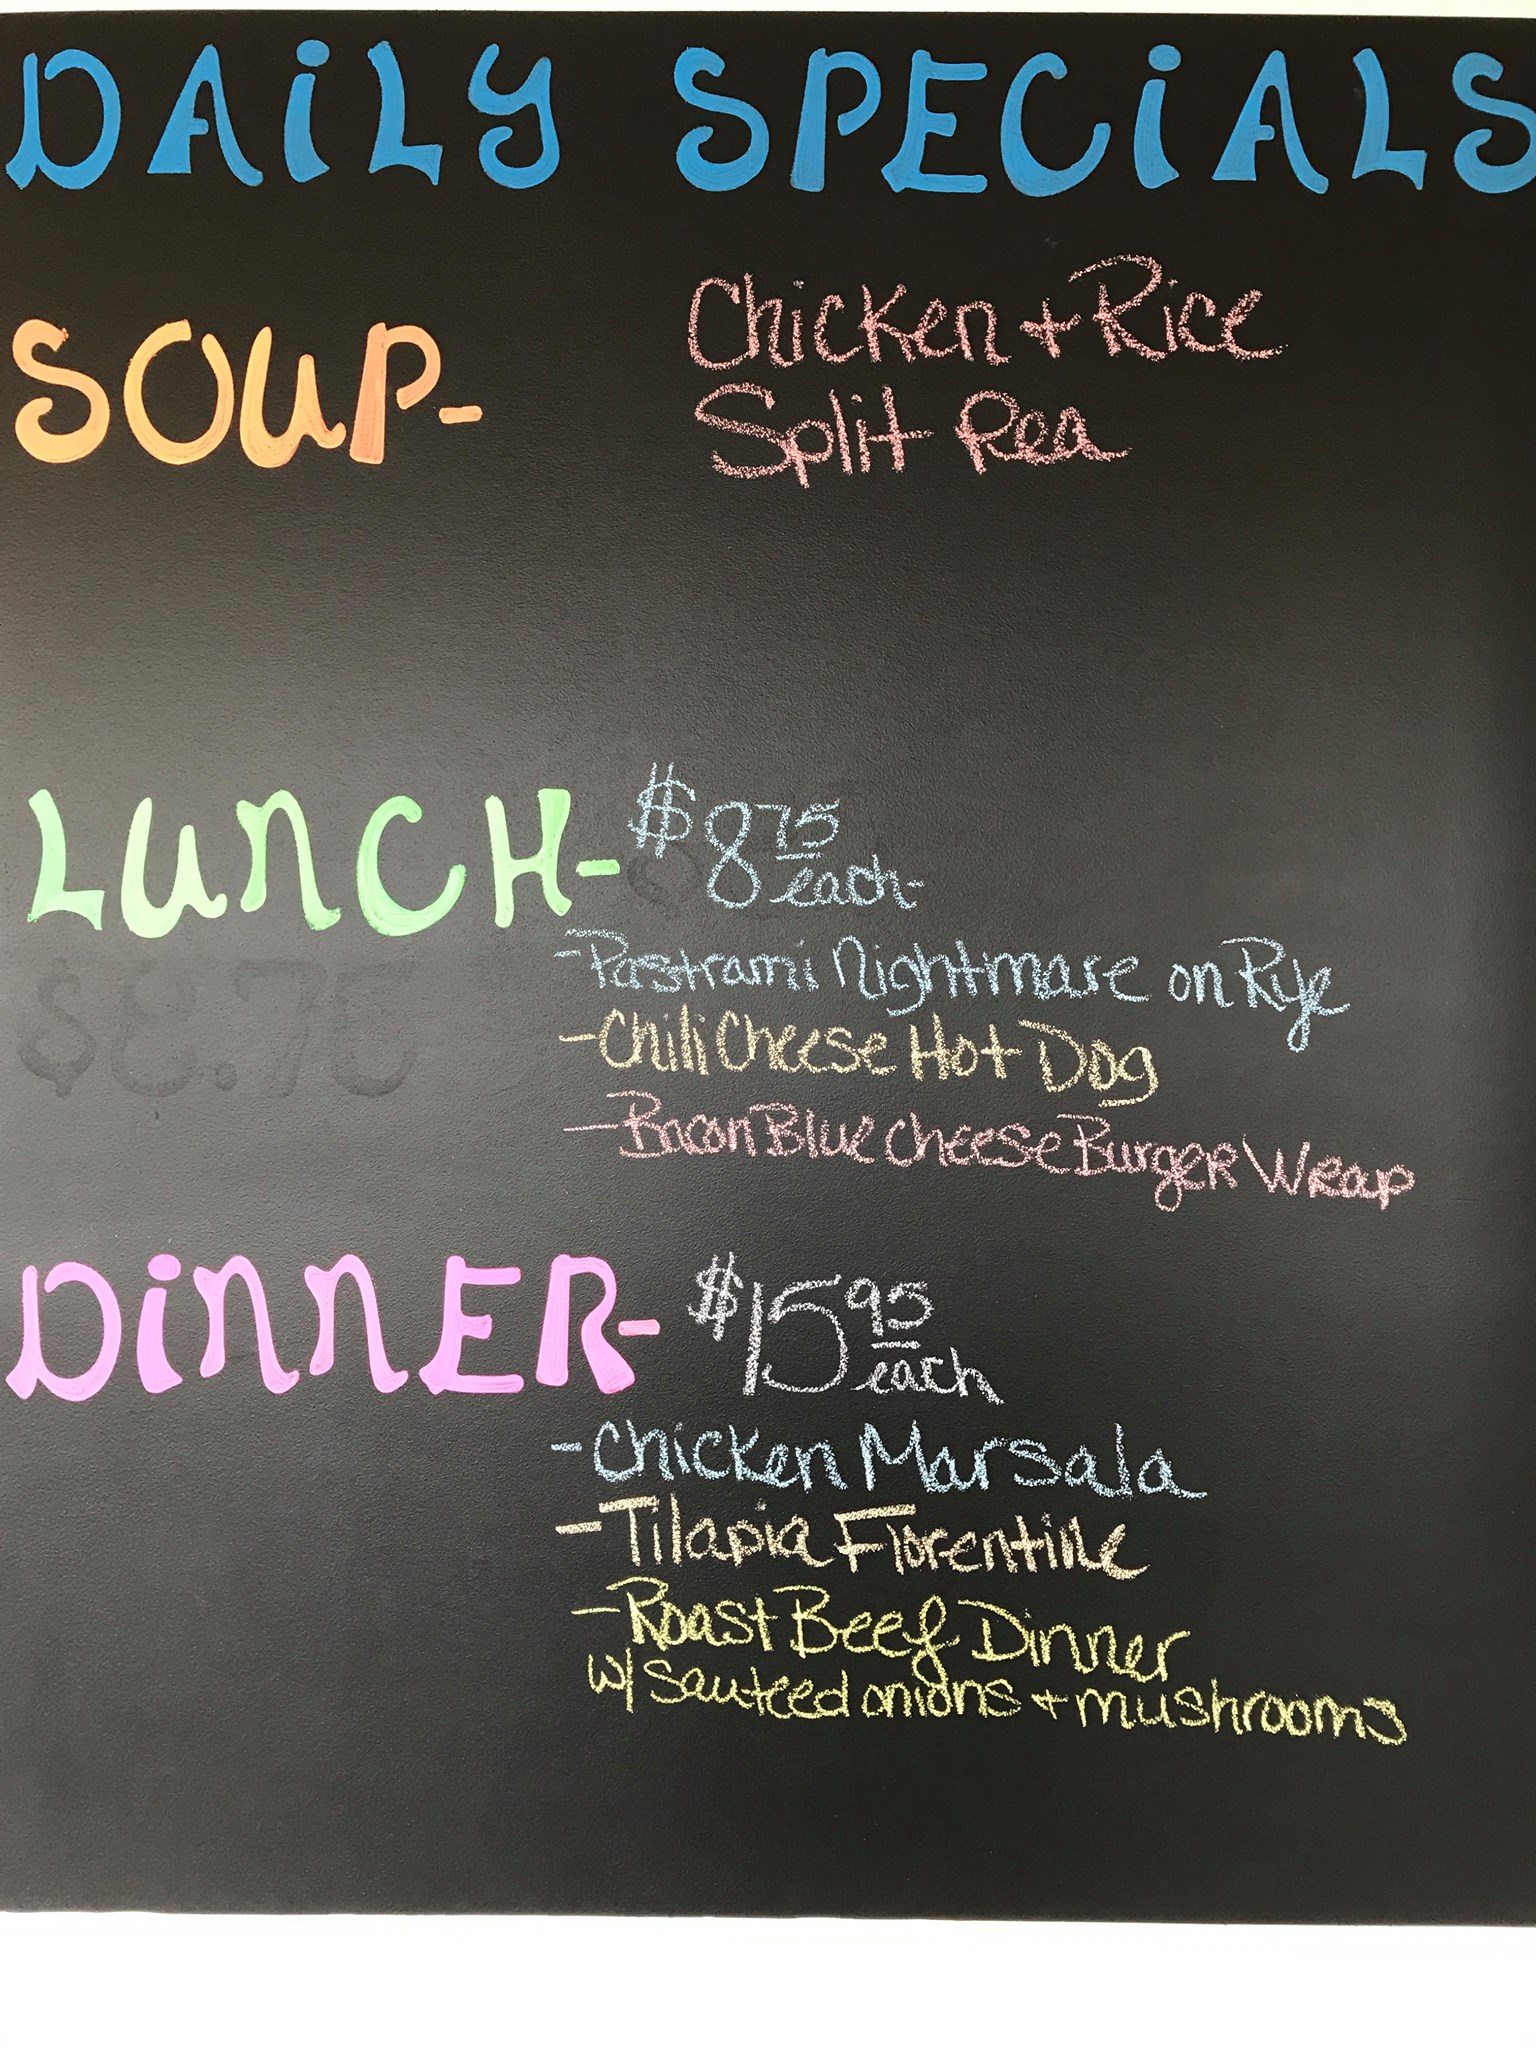 DAiLY SPECiALS
SOUP- Chicken + Rice
Split Pea
LUnCH- $8 75 each-
-Pastrami Nightmare on Rye
-Chili Cheese Hot Dog
-Bacon Blue Cheese Burger Wrap
DinnER- $15 95 each
-Chicken Marsala
-Tilapia Florentine
-Roast Beef Dinner
w/ Sauteed onions + mushrooms